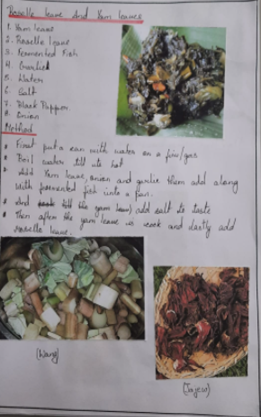 Roselle leave And Yam leaves
1. Yam leave
2. Roselle leave
3. Fermented Fish
4. Garlick
5. Water
6. Salt
7. Black Pepper
8. Onion
Method
First put a can with water on a fire/gas
Boil water till its hot
Add Yam leave, onion and garlic then add along
with fermented fish into a pan.
And till the yam leave add salt to taste
Then after the yam leave is cook and lastly add
roselle leave.
(Wang)